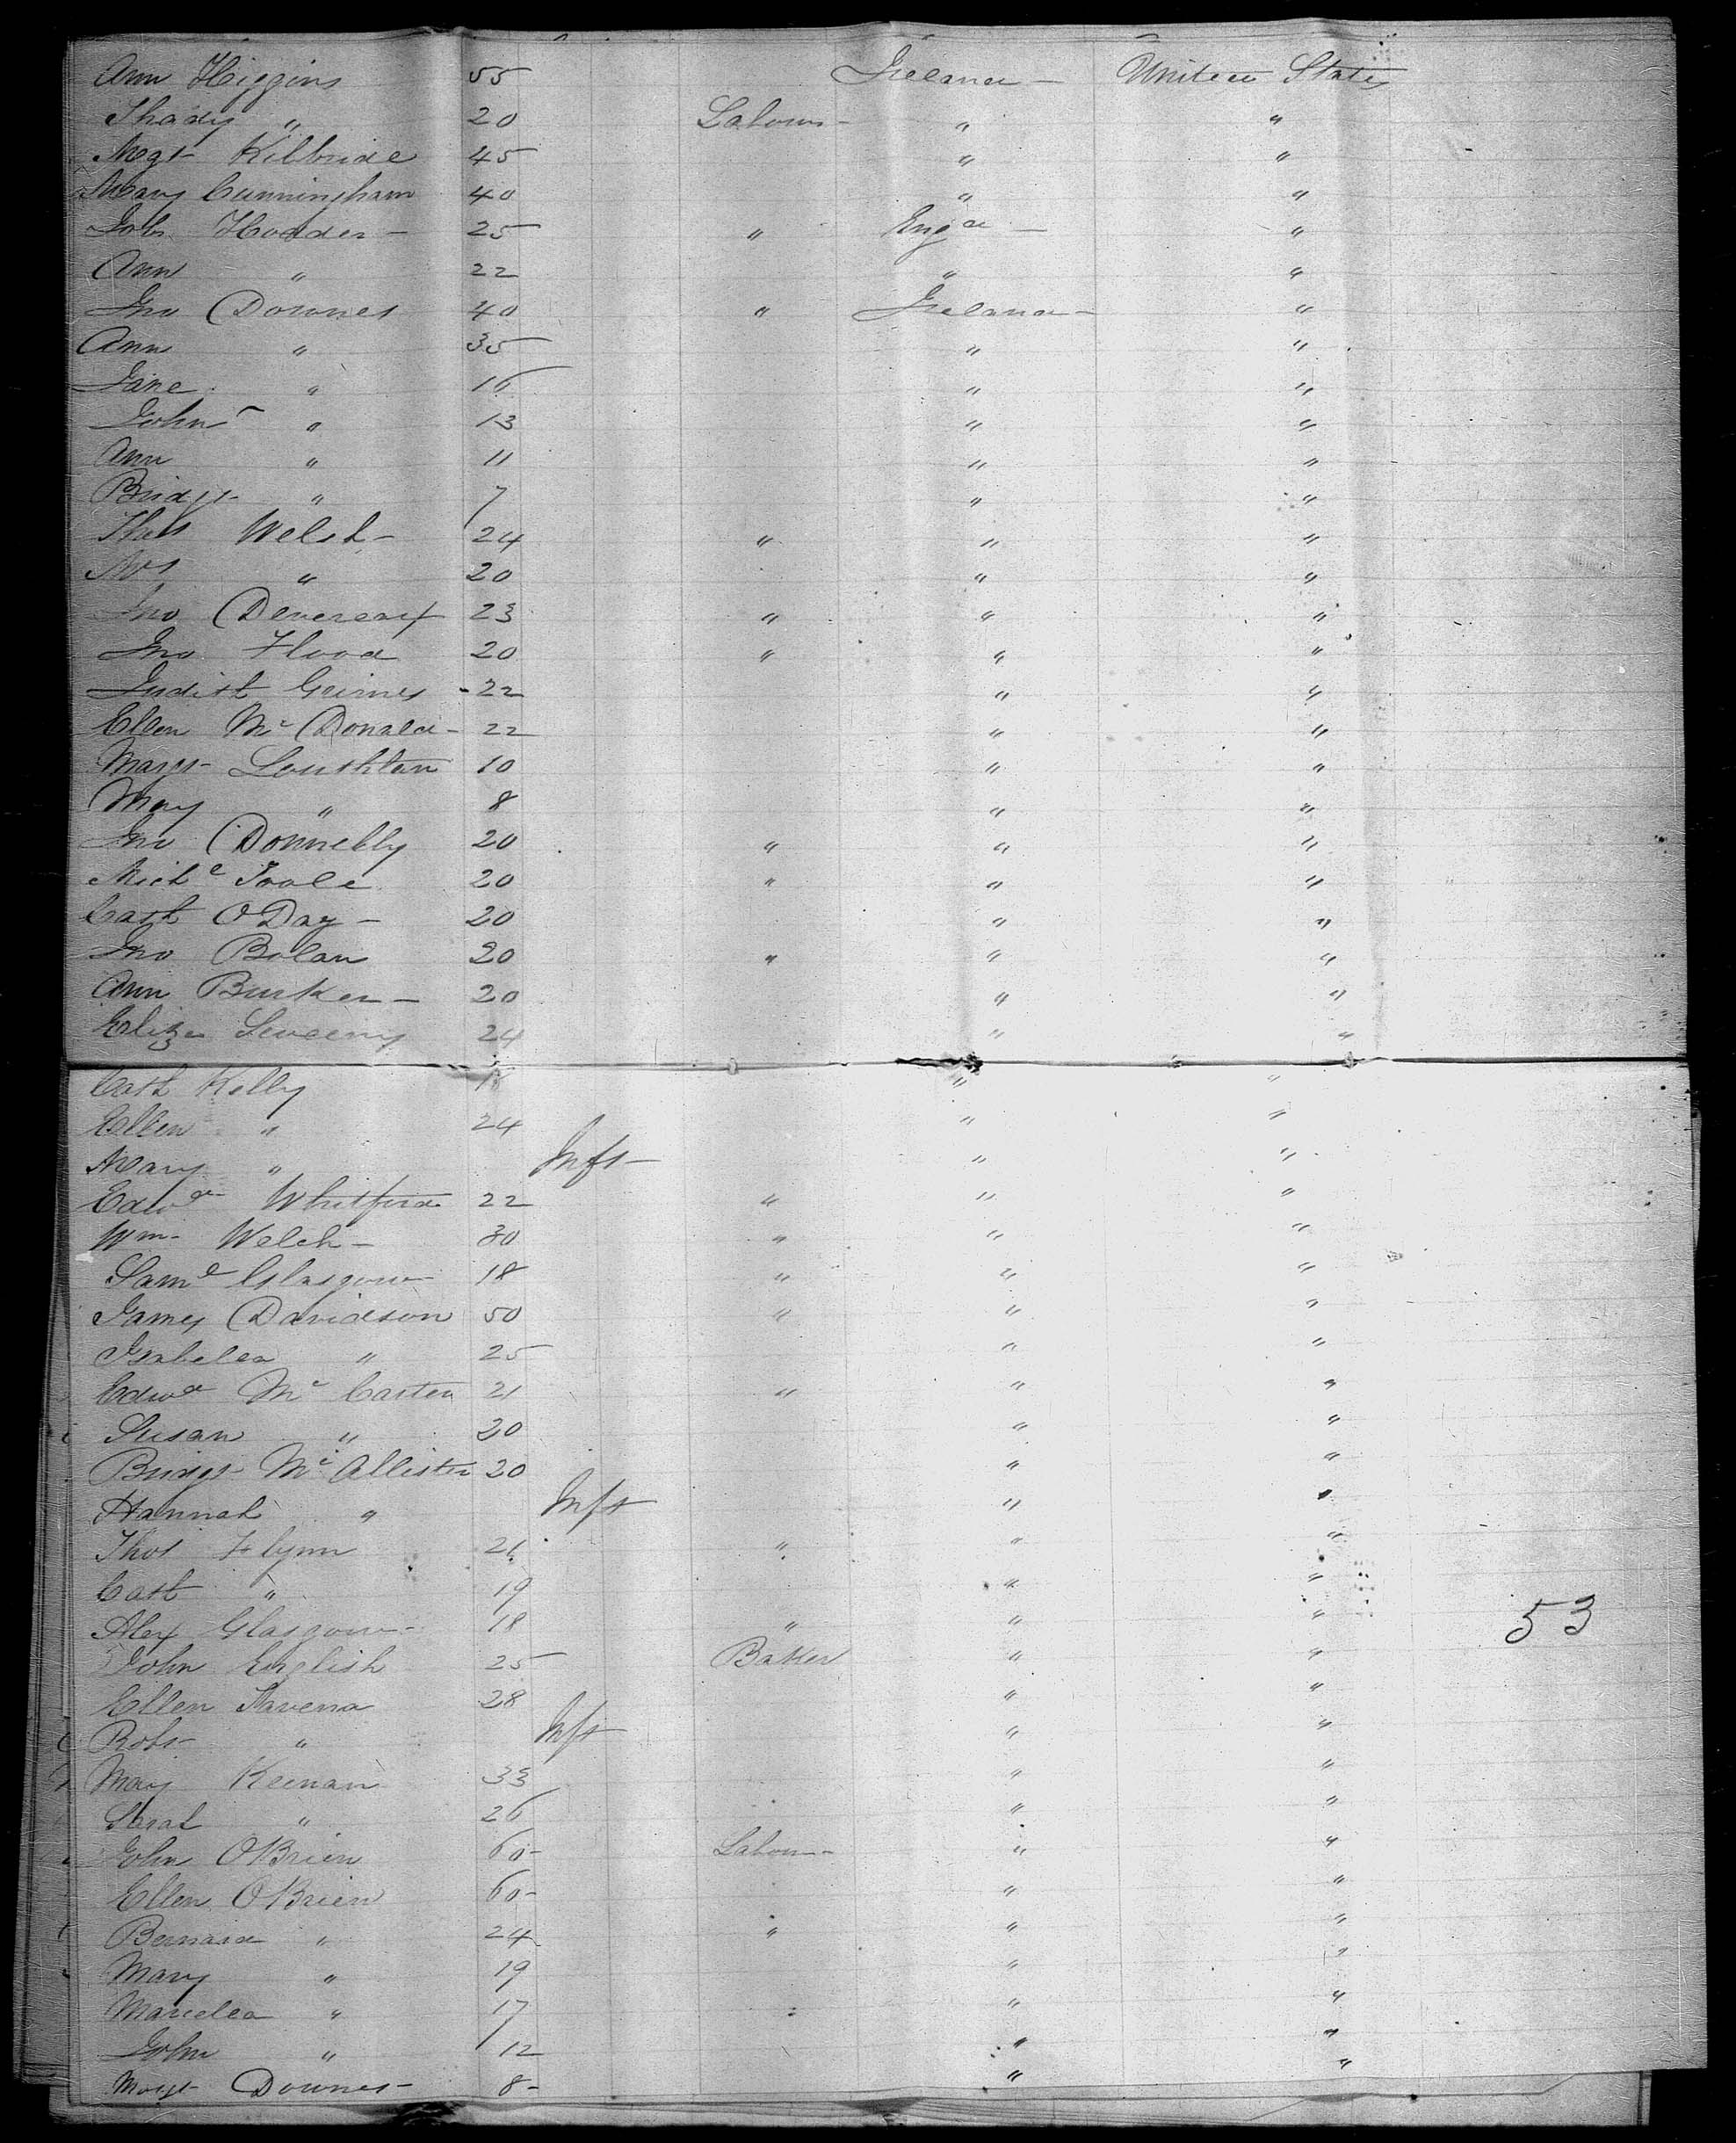 Ann Higgins 55 Ireland - United States
Thady " 20 Labour - " "
Mgt Kilbride 45 " "
Mary Cunningham 40 " "
Hodder - 25 " Engd - "
Ann " 22 " "
Jno Downes 40 " Ireland - "
Ann " 35 " "
Jane " 16 " "
John " 13 " "
Ann " 11 " "
Bridgt " 7 " "
Thos Welsh - 24 " " "
Mrs " 20 " "
Jno Devereaux 23 " " "
Jno Flood 20 " " "
Judith Grimes - 22 " "
Ellen Mc Donald - 22 " "
Margt Loushlan 10 " "
Mary " 8 " "
Jno Donnelly 20 " " "
Michl Toole 20 " " "
Cath O Day - 20 " "
Jno Bolan 20 " " "
Ann Burker - 20 " "
Eliza Sweeny 24 " "
Cath Kelly 18 " "
Ellen " 24 " "
Mary " Inft - " "
Edwd Whitford 22 " " "
Wm Welch - 30 " " "
Saml Glasgow 18 " " "
James Davidson 50 " " "
Isabella " 25 " "
Edwd Mc Carten 21 " " "
Susan " 20 " "
Bridgt Mc Allister 20 " "
Hannah " Inft " "
Thos Flynn 21 " " "
Cath " 19 " "
Alex Glasgow - 18 " " "
53
John English 25 Baker " "
Ellen 28 " "
Robt " Inft " "
Mary Keenan 33 " "
Sarah " 26 " "
John OBrien 60 - Labour - " "
Ellen OBrien 60 - " "
Bernard " 24 " " "
Mary " 19 " "
Marcella " 17 " "
John " 12 " "
Margt Downes - 8 - " "